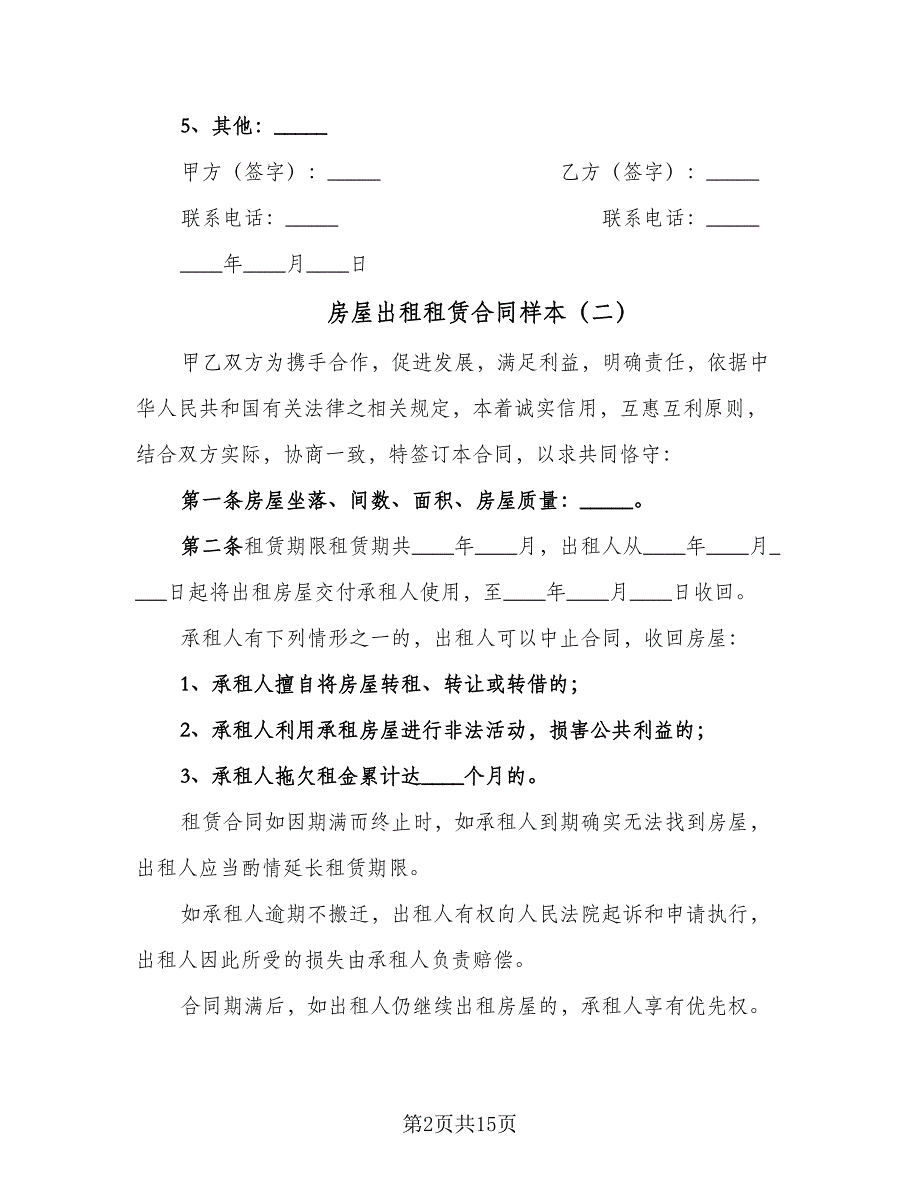 5、其他：_____
甲方（签字）：_____ 乙方（签字）：_____
联系电话：_____ 联系电话：_____
____年____月____日
房屋出租租赁合同样本（二）
甲乙双方为携手合作，促进发展，满足利益，明确责任，依据中
华人民共和国有关法律之相关规定，本着诚实信用，互惠互利原则，
结合双方实际，协商一致，特签订本合同，以求共同恪守：
第一条房屋坐落、间数、面积、房屋质量：_____。
第二条租赁期限租赁期共____年____月，出租人从____年____月_
___日起将出租房屋交付承租人使用，至____年____月____日收回。
承租人有下列情形之一的，出租人可以中止合同，收回房屋：
1、承租人擅自将房屋转租、转让或转借的；
2、承租人利用承租房屋进行非法活动，损害公共利益的；
3、承租人拖欠租金累计达____个月的。
租赁合同如因期满而终止时，如承租人到期确实无法找到房屋，
出租人应当酌情延长租赁期限。
如承租人逾期不搬迁，出租人有权向人民法院起诉和申请执行，
出租人因此所受的损失由承租人负责赔偿。
合同期满后，如出租人仍继续出租房屋的，承租人享有优先权。
第2页共15页